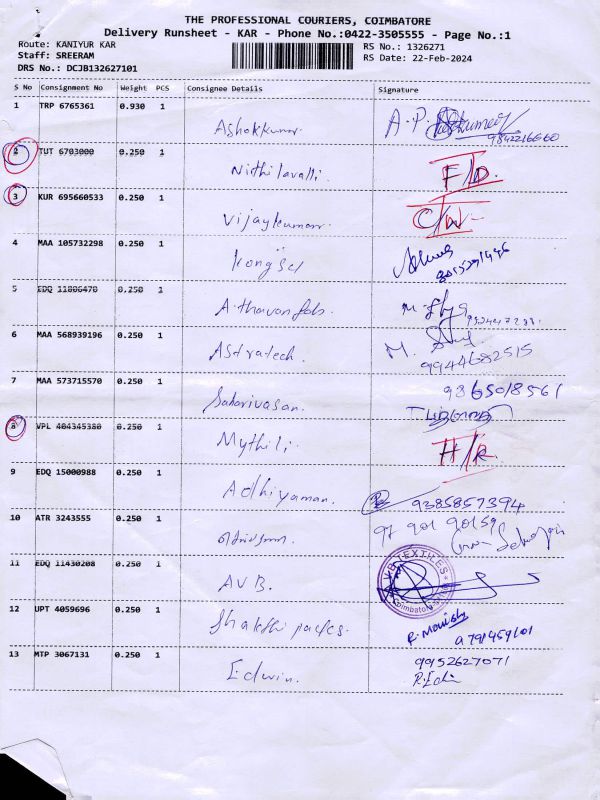 THE PROFESSIONAL COURIERS, COIMBATORE
Delivery Runsheet - KAR - Phone No.:0422-3505555 - Page No.:1
Route: KANIYUR KAR
RS No.: 1326271
Staff: SREERAM
RS Date: 22-Feb-2024
DRS No.: DCJB132627101
S No Consignment No Weight PCS Consignee Details Signature
1 TRP 6765361 0.930 1
Ashokkumar
9842216660
2 TUT 6703000 0.250 1
Nithilavalli. F/D.
3 KUR 695660533 0.250 1
Vijaykumar.
4 MAA 105732298 0.250 1
5 EDQ 11806470 0.250 1
6 MAA 568939196 0.250 1
Astratech.
9944682515
7 MAA 573715570 0.250 1
9865018561
8 VPL 404345380 0.250 1
Mythili. H/R.
9 EDQ 15000988 0.250 1
Adhiyaman. 9385857394
10 ATR 3243555 0.250 1
97 901 90159
11 EDQ 11430208 0.250 1
AVB.
TEXTILES
Coimbatore
12 UPT 4059696 0.250 1
Shakthi packs.
R. Manish
13 MTP 3067131 0.250 1
9952627071
Edwin.